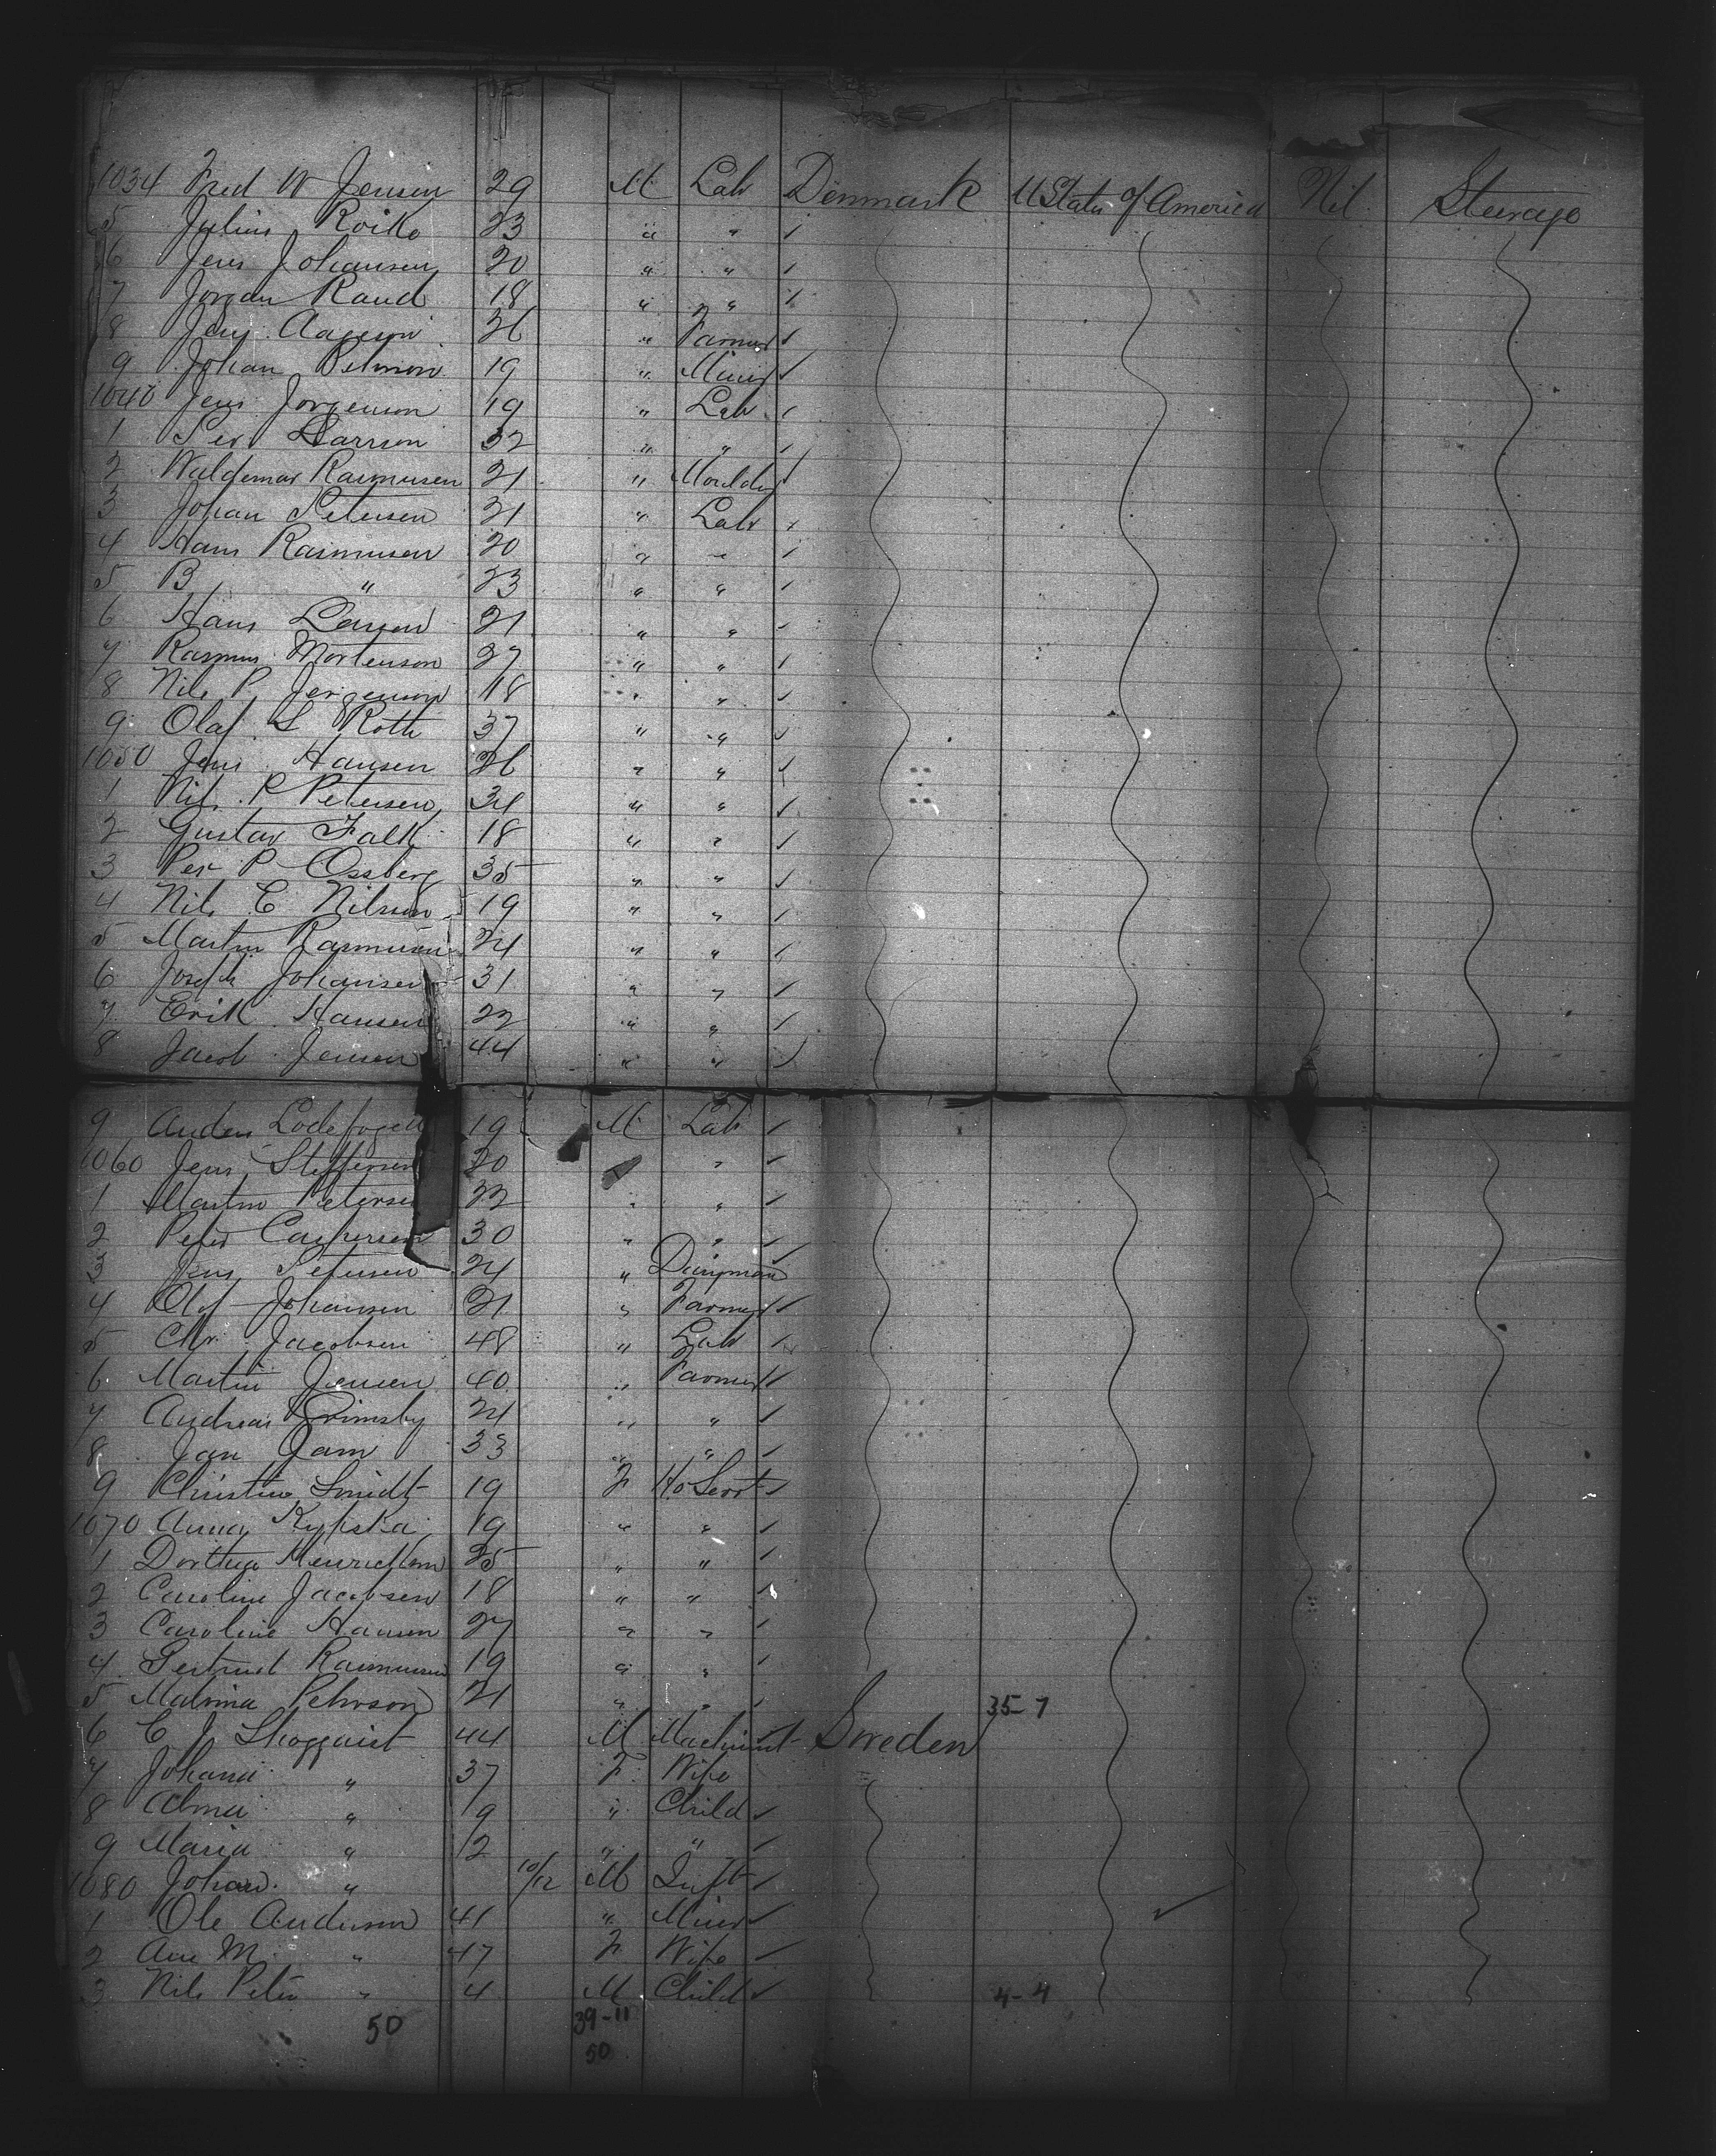 1034 Fred W Jensen 29 M Lab Denmark U States of America Nil Steerage
5 Julius 23 " " ✓
6 Jens Johansen 20 " " ✓
7 Jorgan Raud 18 " " ✓
8 Jens 36 " Farmer ✓
9 Johan 19 " Miner ✓
1040 Jens Jorgenson 19 " Lab ✓
1 Per Larson 32 " " ✓
2 Waldemar Rasmusen 21 " Moulder ✓
3 Johan Petersen 21 " Lab ✓
4 Hans Rasmusen 20 " " ✓
5 B " 23 " " ✓
6 Hans Larsen 21 " " ✓
7 Rasmus Mortenson 27 " " ✓
8 Nils P Jergenson 18 " " ✓
9 Olaf L Roth 37 " " ✓
1050 Jens Hansen 26 " " ✓
1 Nils P Petersen 34 " " ✓
2 Gustav Falk 18 " " ✓
3 Per P Ossberg 35 " " ✓
4 Nils C Nilsson 19 " " ✓
5 Martin Rasmusen 24 " " ✓
6 Joseph Johansen 31 " " ✓
7 Erik Hansen 22 " " ✓
8 Jacob Jensen 44 " " ✓
9 Anders 19 M Lab ✓
1060 Jens Steffensen 20 " ✓
1 Martin Peterse 22 " " ✓
2 Peter Caspersen 30 " " ✓
3 Jens Petersen 24 " Dairyman ✓
4 Olof Johansen 21 " Farmer ✓
5 Chr Jacobsen 48 " Lab ✓
6 Martin Jensen 40 " Farmer ✓
7 Andreas Grimsby 24 " " ✓
8 Jan Jam 33 " " ✓
9 Christine Smidt 19 F Ho Servt ✓
1070 Anna 19 " " ✓
1 Dorthea Henricksen 25 " " ✓
2 Caroline Jacobsen 18 " " ✓
3 Caroline Hansen 27 " " ✓
4 Gertrud Rasmusen 19 " " ✓
5 Malvina Pehrson 21 " " ✓ 35-7
6 C J Skogquist 44 M Machinist Sweden
7 Johana " 37 F Wife
8 Alma " 9 " Child ✓
9 Maria " 2 " " ✓
1080 Johan " 10/12 M Inft ✓
1 Ole Anderson 41 " Miner ✓ ✓
2 Ane M " 47 F Wife ✓
3 Nils Peter " 4 M Child ✓ 4-4
50 39-11
50